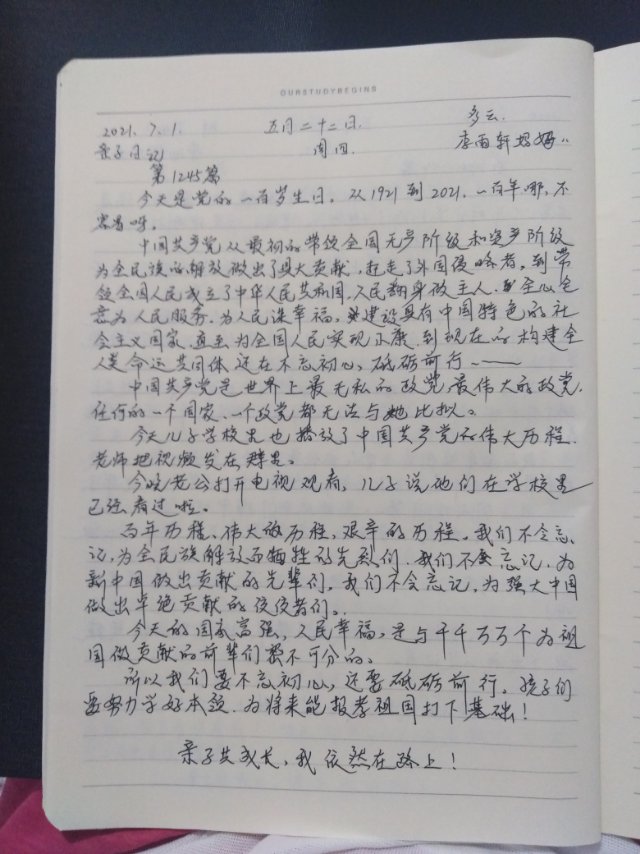 OURSTUDYBEGINS
2021.7.1. 五月二十二日. 多云.
亲子日记 周四. 李雨轩妈妈
第1245篇
今天是党的一百岁生日，从1921到2021，一百年哪，不
容易呀。
中国共产党从最初的带领全国无产阶级和资产阶级
为全民族的解放做出了巨大贡献，赶走了外国侵略者，到带
领全国人民成立了中华人民共和国，人民翻身做主人，全心全
意为人民服务，为人民谋幸福，建设具有中国特色的社
会主义国家，直至为全国人民实现小康，到现在的构建全
人类命运共同体，还在不忘初心，砥砺前行~~
中国共产党是世界上最无私的政党，最伟大的政党，
任何的一个国家、一个政党都无法与她比拟。
今天儿子学校里也播放了中国共产党的伟大历程，
老师把视频发在群里。
今晚老公打开电视观看，儿子说他们在学校里
已经看过啦。
百年历程、伟大的历程，艰辛的历程，我们不会忘
记，为全民族解放而牺牲的先烈们，我们不会忘记，为
新中国做出贡献的先辈们，我们不会忘记，为强大中国
做出卓绝贡献的佼佼者们。
今天的国家富强，人民幸福，是与千千万万个为祖
国做贡献的前辈们密不可分的。
所以我们要不忘初心，还要砥砺前行。孩子们
要努力学好本领，为将来能报孝祖国打下基础！
亲子共成长，我依然在路上！